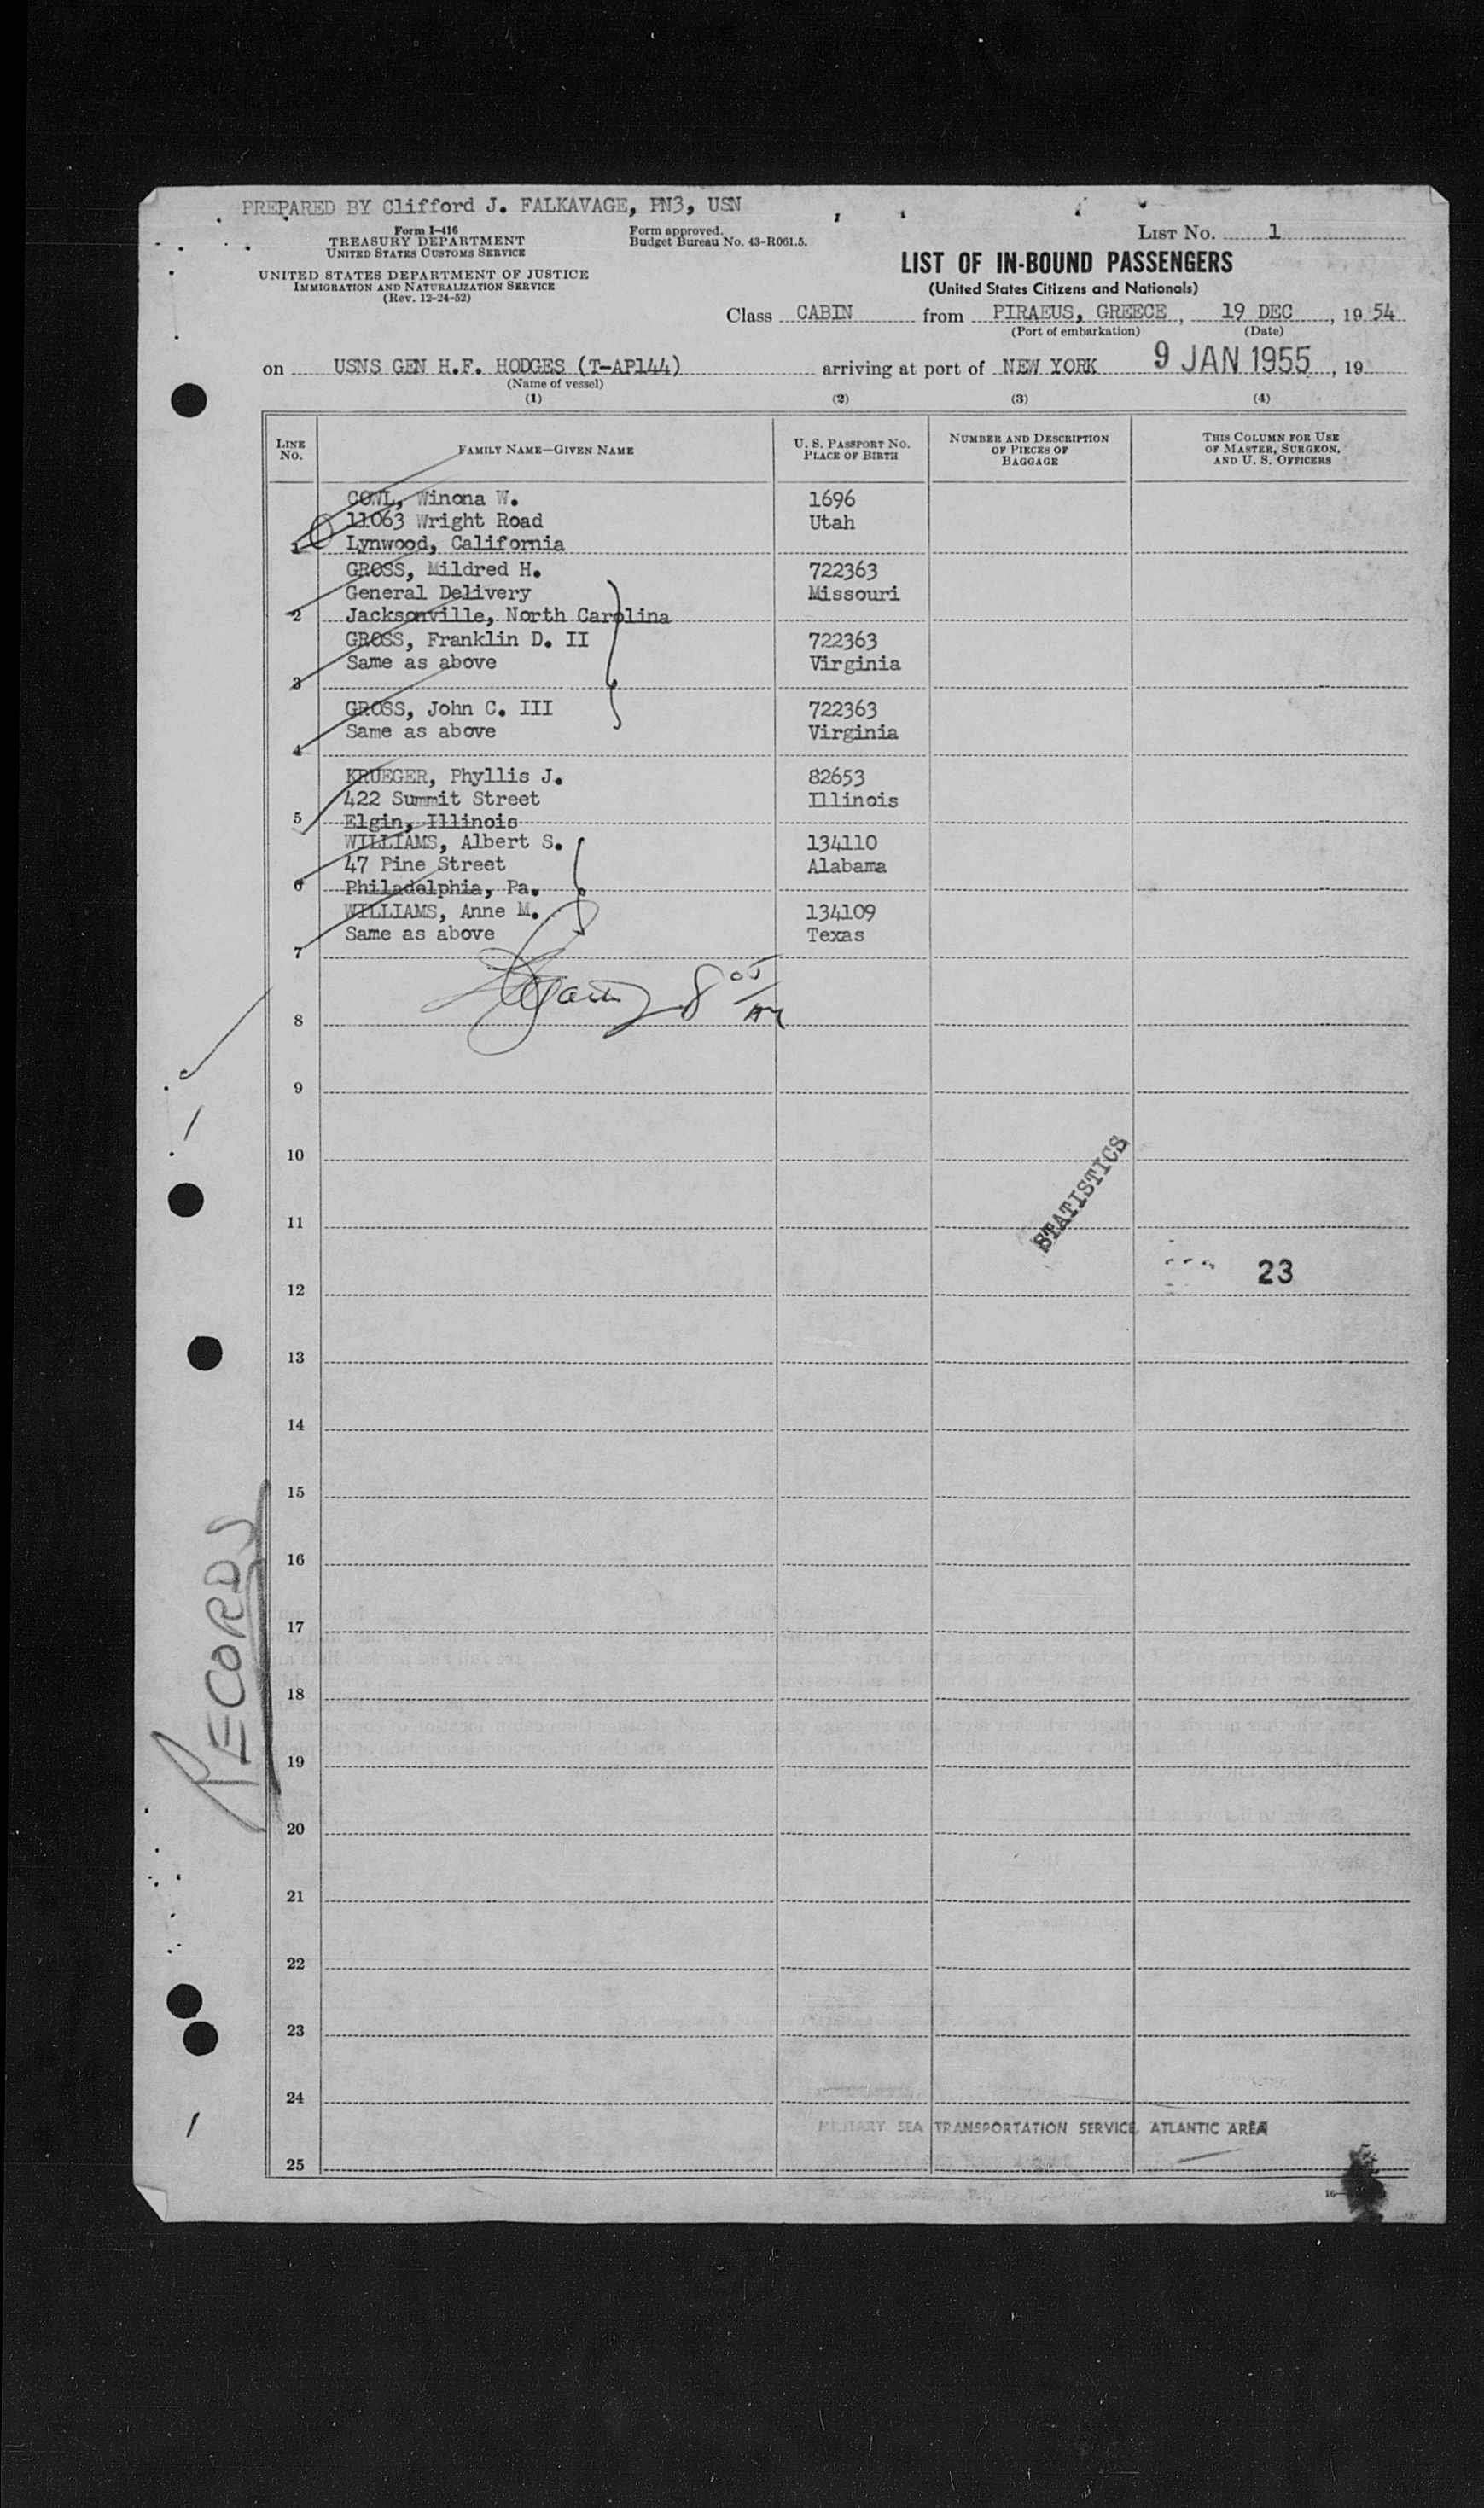 PREPARED BY Clifford J. FALKAVAGE, PN3, USN
Form I-416
TREASURY DEPARTMENT
UNITED STATES CUSTOMS SERVICE
UNITED STATES DEPARTMENT OF JUSTICE
IMMIGRATION AND NATURALIZATION SERVICE
(Rev. 12-24-52)
Form approved.
Budget Bureau No. 43-R061.5.
LIST NO. 1
LIST OF IN-BOUND PASSENGERS
(United States Citizens and Nationals)
Class CABIN from PIRAEUS, GREECE, 19 DEC, 1954
(Port of embarkation) (Date)
on USNS GEN H.F. HODGES (T-AP144) arriving at port of NEW YORK 9 JAN 1955, 19
(Name of vessel)
(1) (2) (3) (4)
LINE NO. FAMILY NAME—GIVEN NAME U. S. PASSPORT NO. PLACE OF BIRTH NUMBER AND DESCRIPTION OF PIECES OF BAGGAGE THIS COLUMN FOR USE OF MASTER, SURGEON, AND U. S. OFFICERS
COWL, Winona W. 1696
11063 Wright Road Utah
1 Lynwood, California
GROSS, Mildred H. 722363
General Delivery Missouri
2 Jacksonville, North Carolina
GROSS, Franklin D. II 722363
Same as above Virginia
3
GROSS, John C. III 722363
Same as above Virginia
4
KRUEGER, Phyllis J. 82653
422 Summit Street Illinois
5 Elgin, Illinois
WILLIAMS, Albert S. 134110
47 Pine Street Alabama
6 Philadelphia, Pa.
WILLIAMS, Anne M. 134109
Same as above Texas
7
8
9
10
11
STATISTICS
12 23
13
14
15
16
RECORDS
17
18
19
20
21
22
23
24
MILITARY SEA TRANSPORTATION SERVICE, ATLANTIC AREA
25
16—